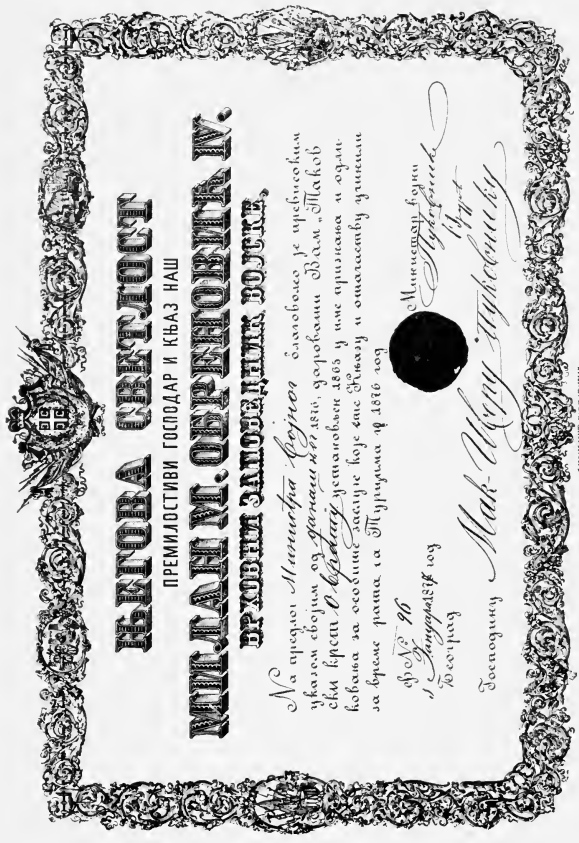 ЊЕГОВА СВЕТЛОСТ
ПРЕМИЛОСТИВИ ГОСПОДАР И КЊАЗ НАШ
МИЛАН М. ОБРЕНОВИЋ IV.
ВРХОВНИ ЗАПОВЕДНИК ВОЈСКЕ,
На предлог Министра Војног благоволео је превисоким
указом својим од данашњег 1876, даровати Вам „Таков
ски крст установљен 1865 у име признања и одли
ковања за особите заслуге које сте Књазу и отачаству учинили
за време рата са Турцима 1876 год
ФNo 96
Јануара 187 год
Београд
Министар војни
Пуковник
Господину Мак- Пуковнику